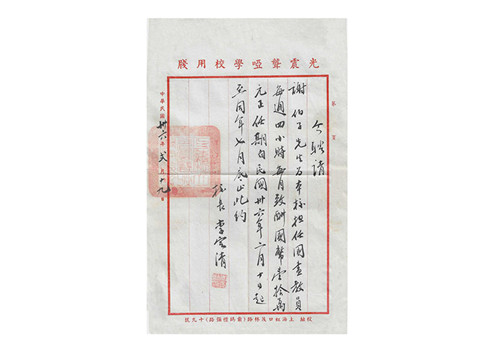 光震聾啞學校用牋
今聘請
謝伯子先生為本校担任國畫教員
每週四小時每月致酬國幣壹拾萬
元正任期自民國卅六年二月十日起
至同年七月底止此約
校長 李定清
中華民國卅六年弍月十九日
校址 上海虹口